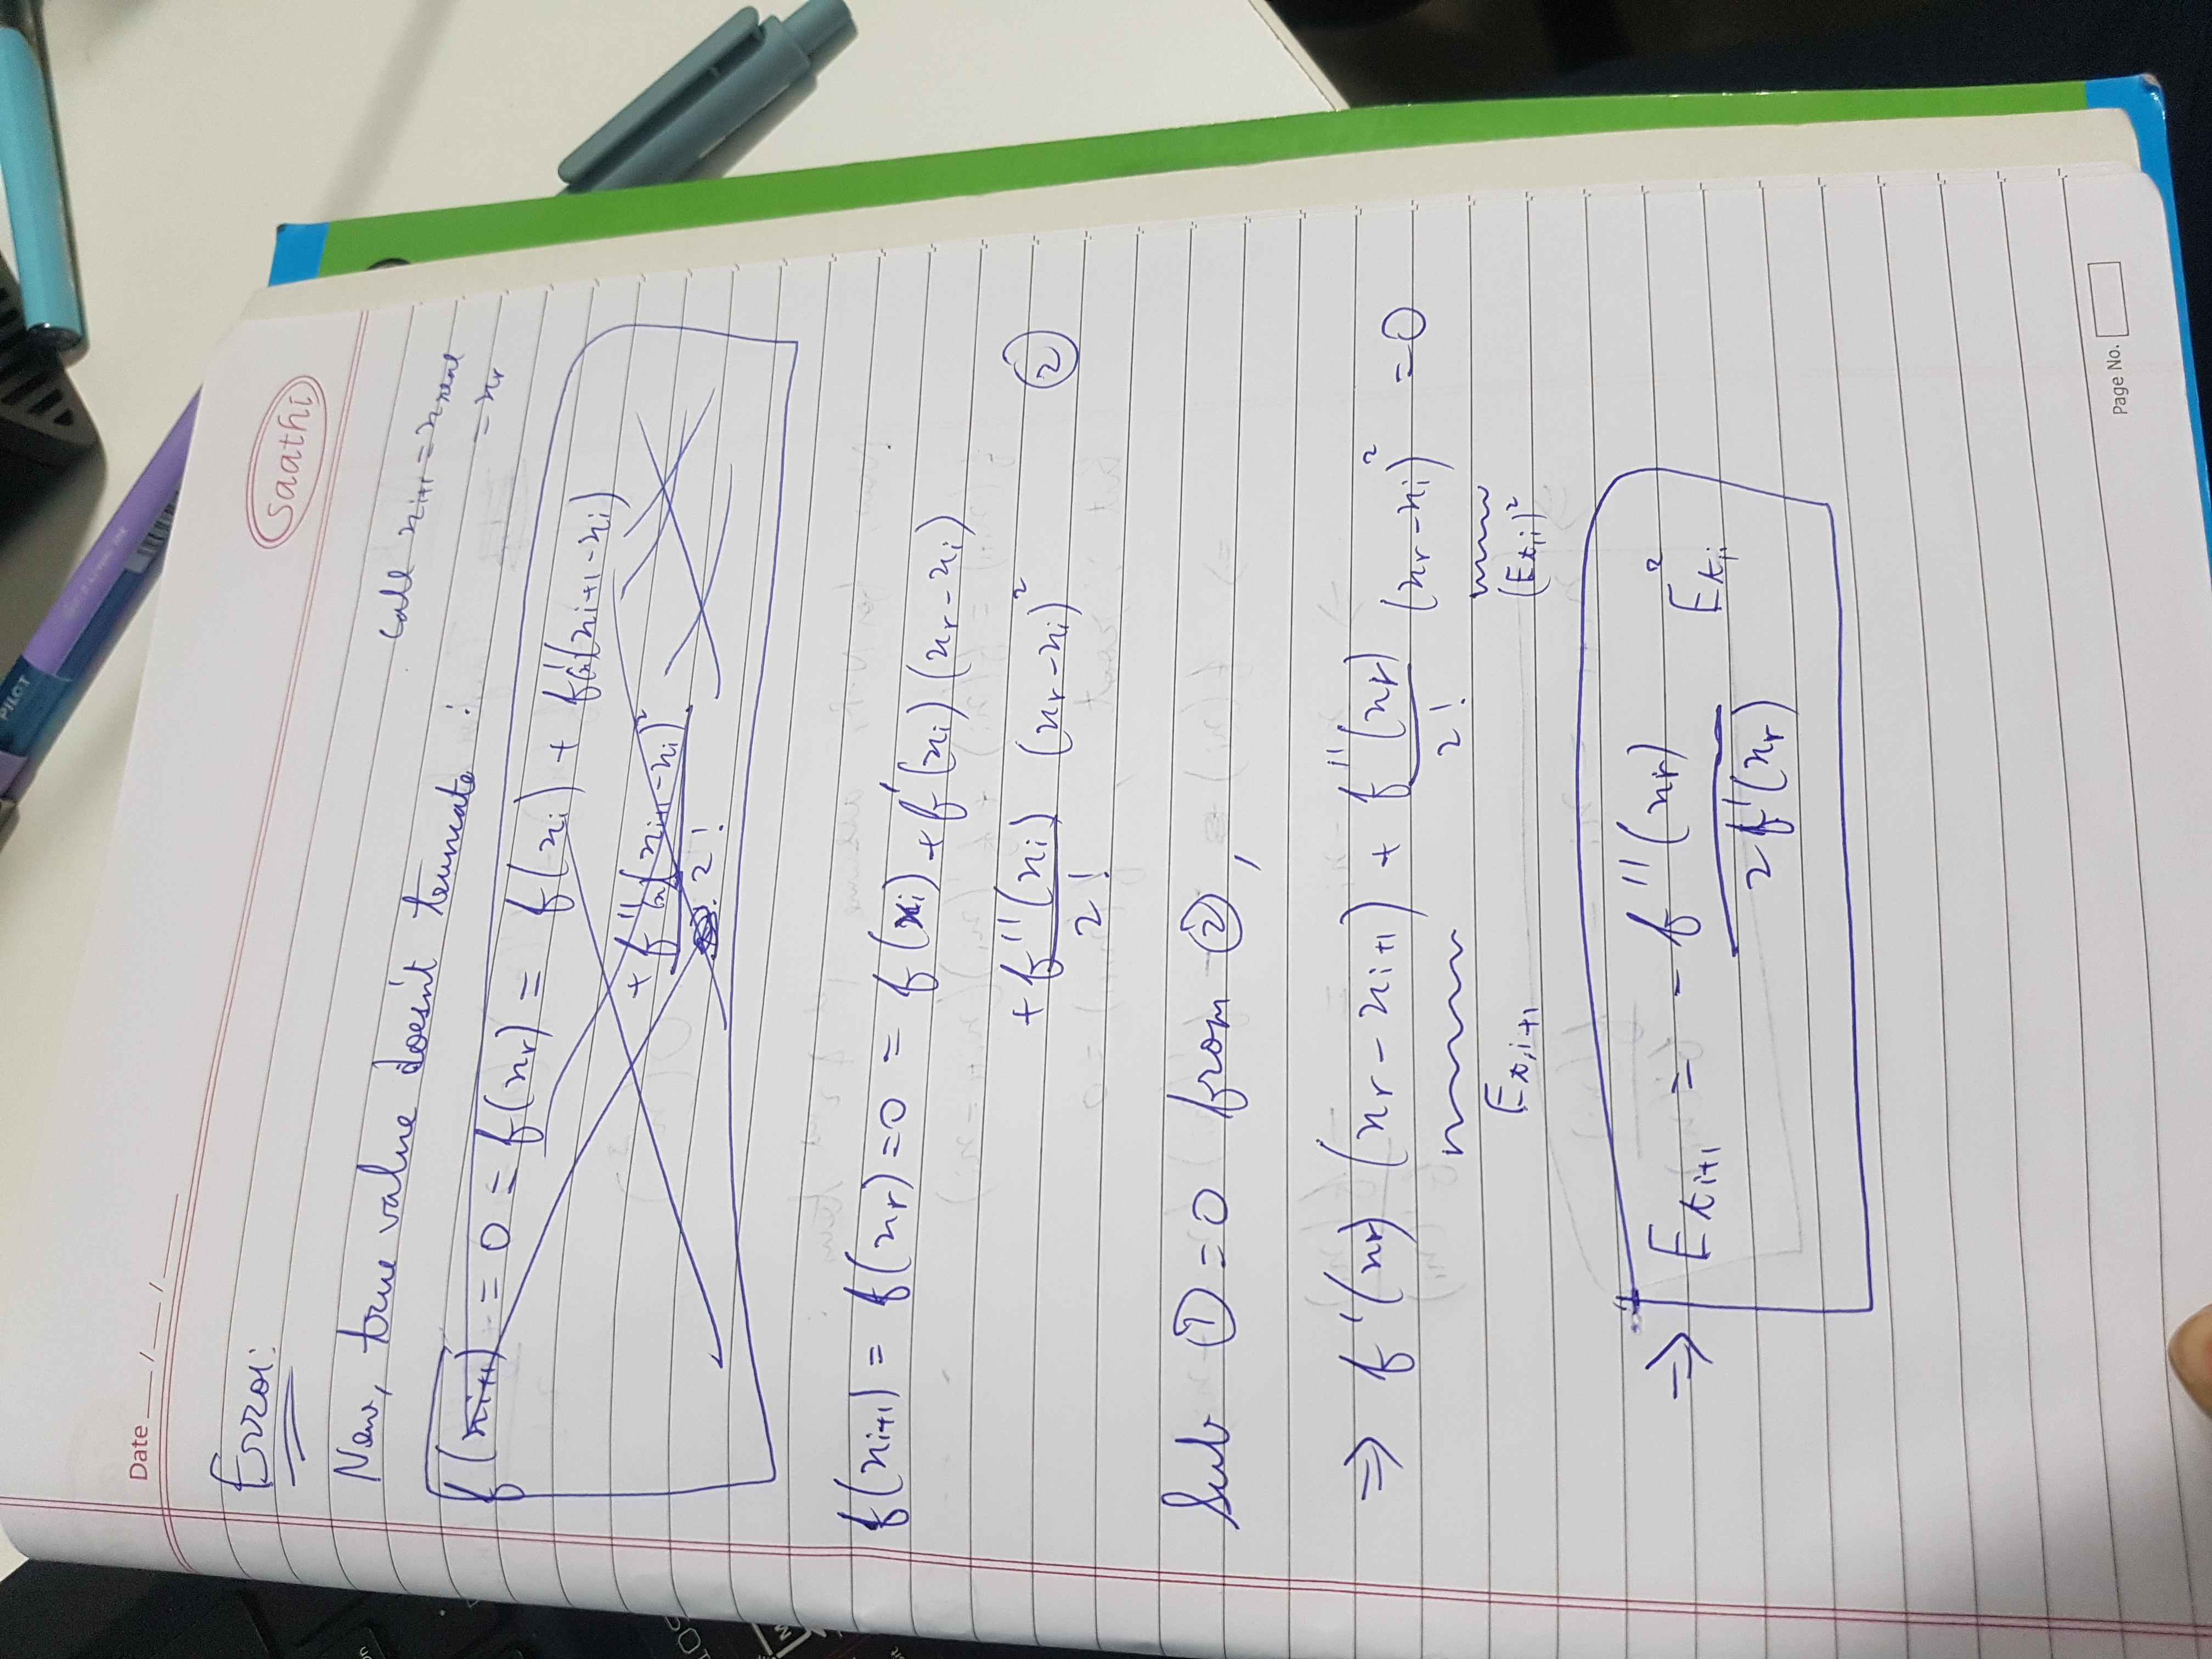 PILOT
Date __/__/____
saathi
Error:
Now, true value doesn't truncate :
Call x_{i+1} = x_{real}
= x_r
f(x_{i+1}) = 0 = f(x_r) = f(x_i) + f'(x_{i+1} - x_i)
+ f''(x_{i+1} - x_i)²
2!
f(x_{i+1}) = f(x_r) = 0 = f(x_i) + f'(x_i) (x_r - x_i)
+ f''(x_i) (x_r - x_i)² ②
2!
Sub ① = 0 from ②,
⇒ f'(x_r) (x_r - x_{i+1}) + f''(x_r) (x_r - x_i)² = 0
2!
E_{t,i+1} (E_{t,i})²
⇒ E_{t i+1} = - f''(x_r) E²_{t,i}
2f'(x_r)
Page No.